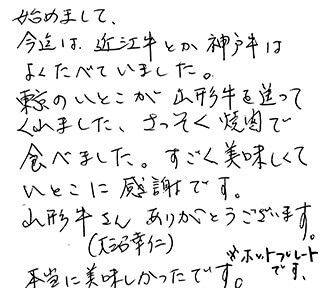 始めまして、
今迄は、近江牛とか神戸牛は
よくたべていました。
東京のいとこが山形牛を送って
くれました、さっそく焼肉で
食べました。すごく美味しくて
いとこに感謝です。
山形牛さんありがとうございます。
(大沼幸仁)
※ホットプレート
です、
本当に美味しかったです。